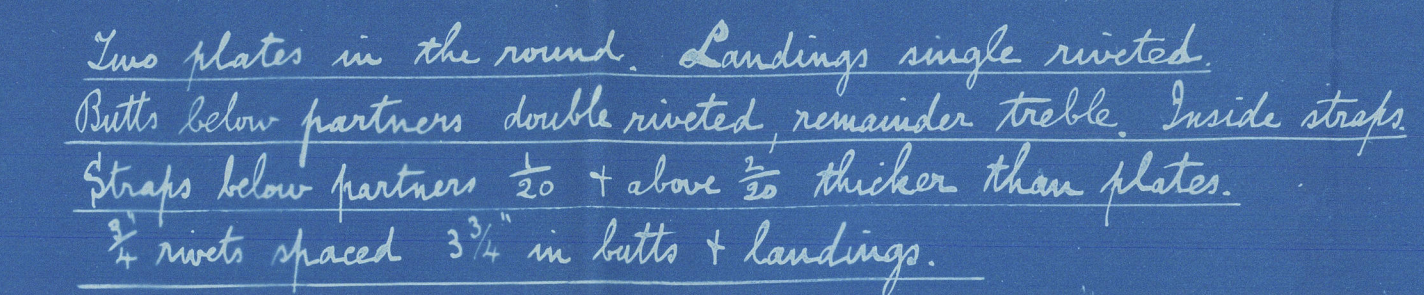 Two plates in the round. Landings single riveted.
Butts below partners double riveted, remainder treble. Inside straps.
Straps below partners 1/20 + above 2/20 thicker than plates.
3/4" rivets spaced 3 3/4" in butts + landings.